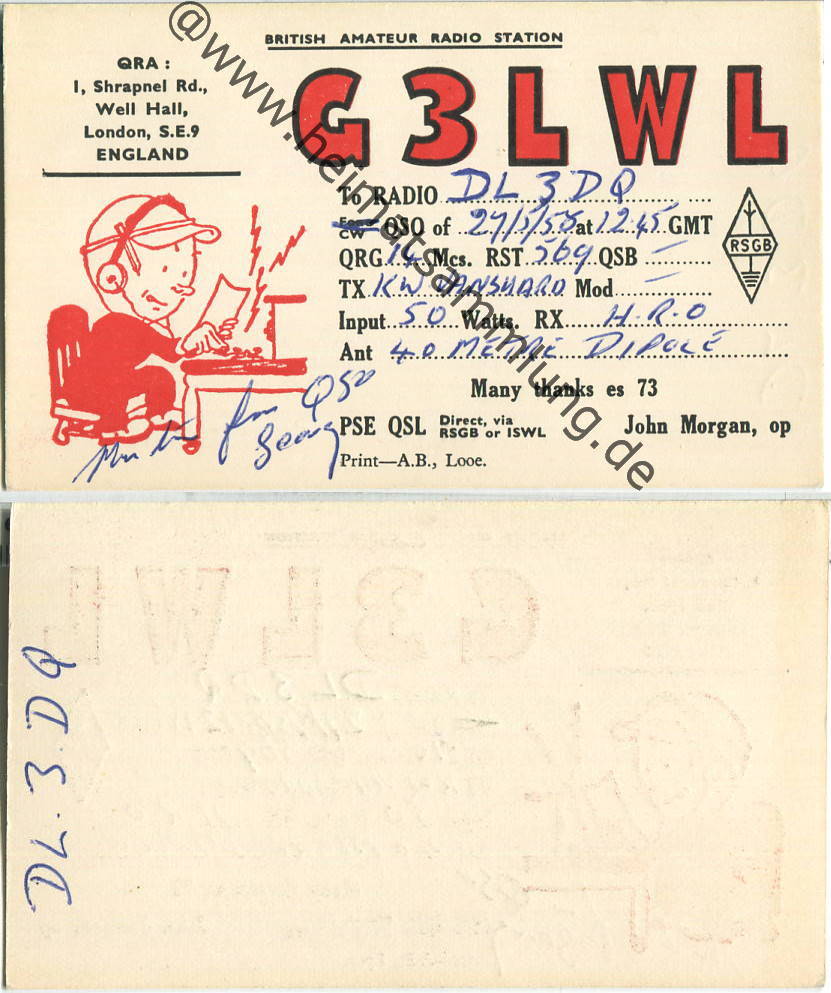 BRITISH AMATEUR RADIO STATION
QRA :
1, Shrapnel Rd.,
Well Hall,
London, S.E.9
ENGLAND
G3LWL
To RADIO DL3DQ
Fone CW QSO of 27/5/58 at 12.45 GMT
QRG 14 Mcs. RST 569 QSB —
TX KW VANGUARD Mod —
Input 50 Watts, RX H.R.O
Ant 40 METRE DIPOLE
Many thanks es 73
PSE QSL Direct, via RSGB or ISWL John Morgan, op
Print—A.B., Looe.
RSGB
for QSO
@www.heimatsammlung.de
DL.3.DQ